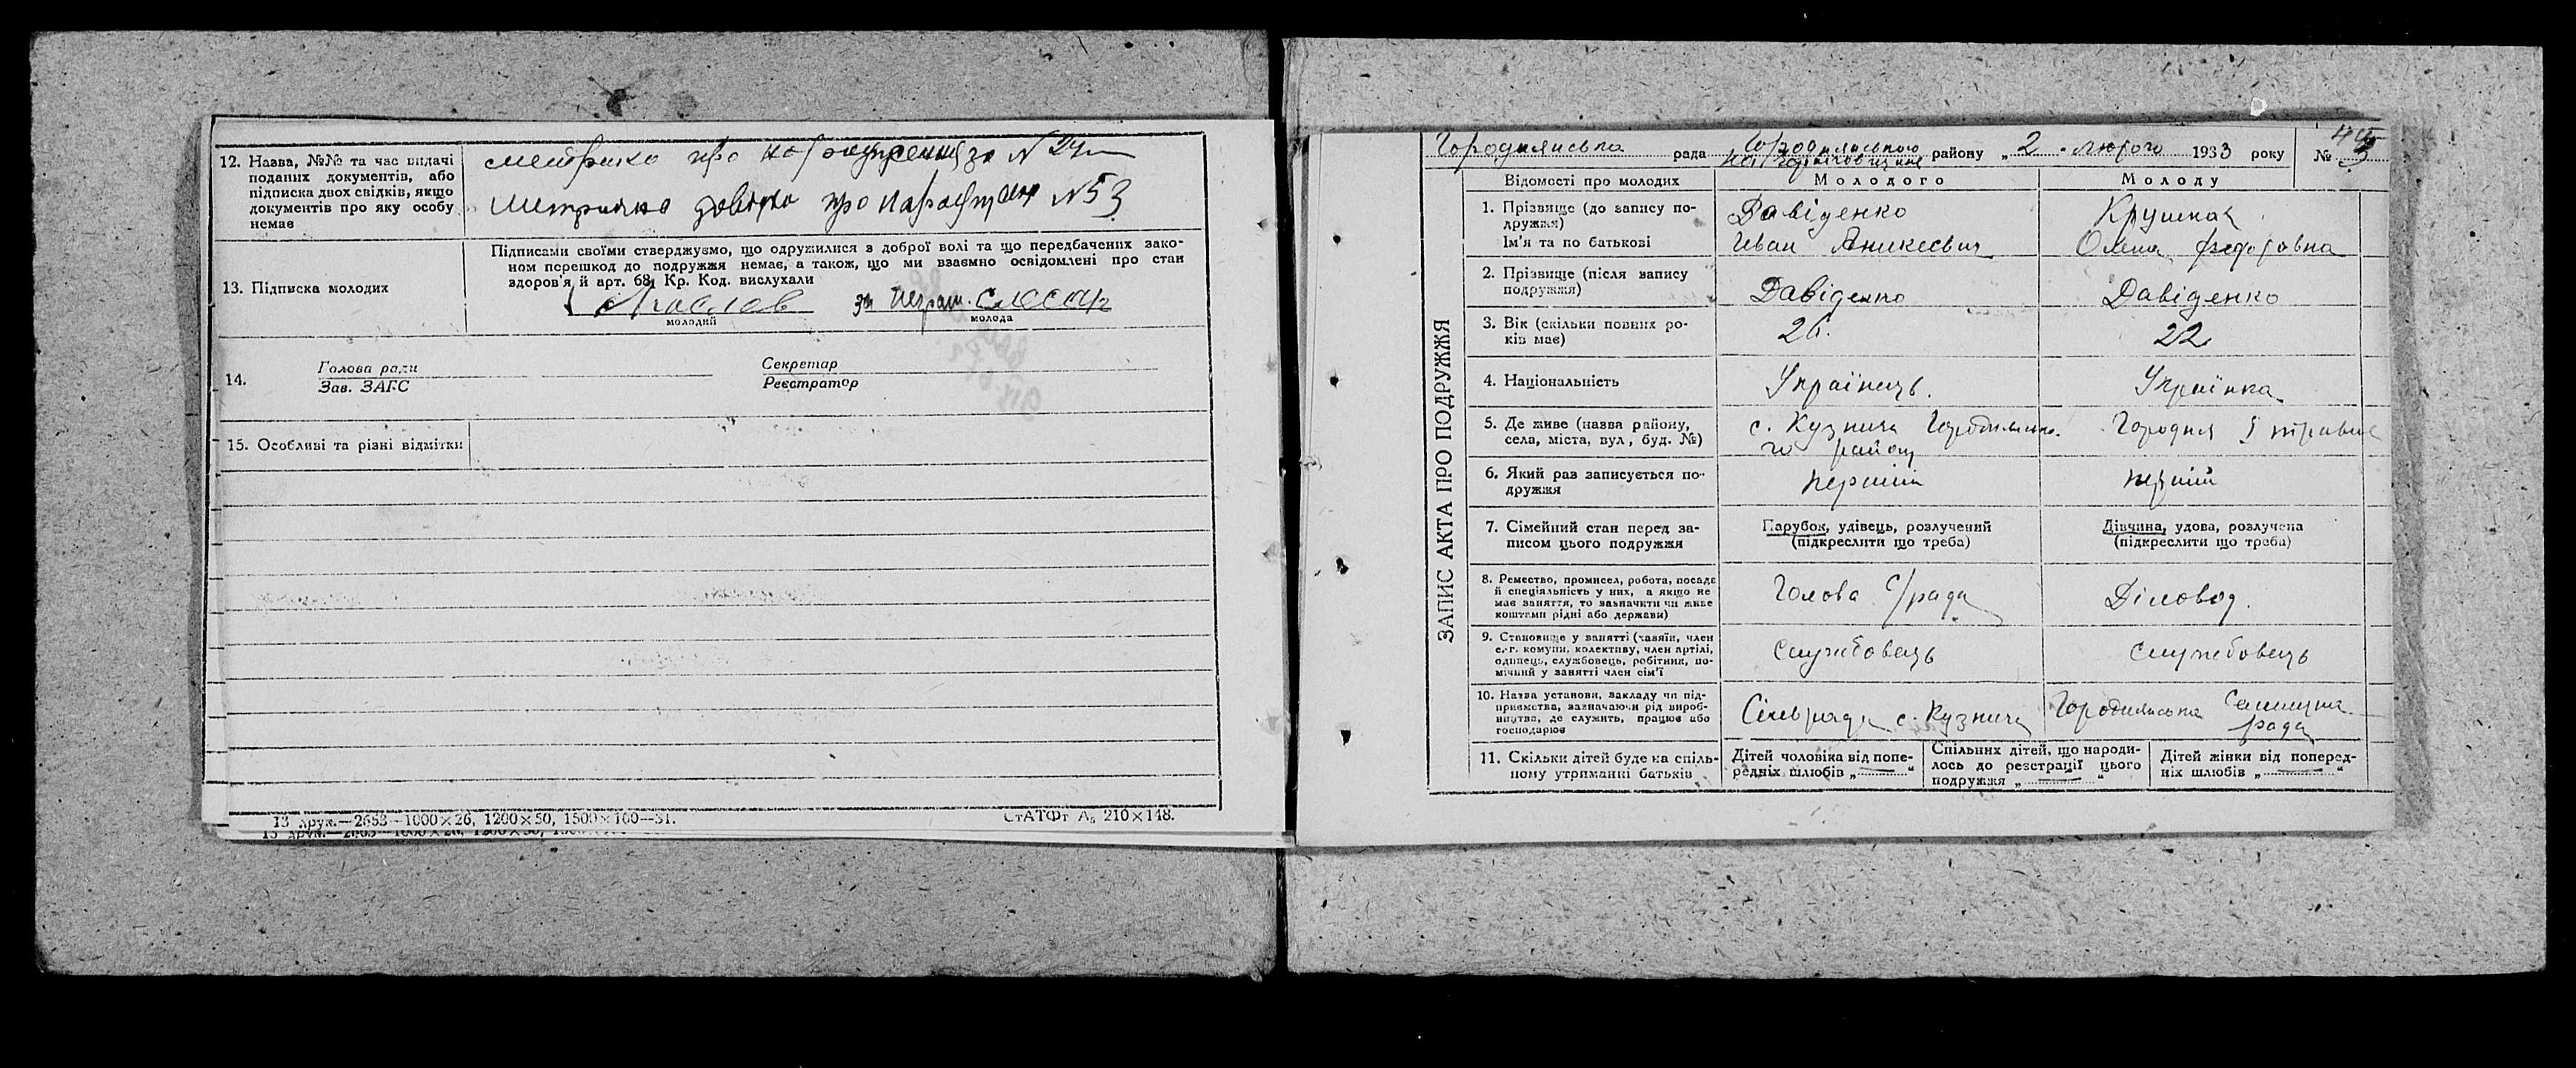 12. Назва, №№ та час видачі
поданих документів, або
підписка двох свідків, якщо
документів про яку особу
немає
метрика про за N 24
Метрична довідка про N 53
13. Підписка молодих
Підписами своїми стверджуємо, що одружилися з доброї волі та що передбачених зако-
ном перешкод до подружжя немає, а також, що ми взаємно освідомлені про стан
здоров'я й арт. 68 Кр. Код. вислухали
за неграм.
молодий
молода
14.
Голова ради
Зав. ЗАГС
Секретар
Реєстратор
15. Особливі та різні відмітки
13 друк.—2653—1000×26, 1200×50, 1500×100—31.
СтАТФт А₅ 210×148.
ЗАПИС АКТА ПРО ПОДРУЖЖЯ
Городнянська рада Городнянського району „2 лютого 1933 року
на Чернігівщине
№ 3
Відомості про молодих
Молодого
Молоду
1. Прізвище (до запису по-
дружжя)
Ім'я та по батькові
Давіденко
Иван Аникеевич
Олена Федоровна
2. Прізвище (після запису
подружжя)
Давіденко
Давіденко
3. Вік (скільки повних ро-
ків має)
26.
22
4. Національність
Українець.
Українка
5. Де живе (назва району,
села, міста, вул, буд. №)
с. Кузничи Городнянсько-
го району
Городня 1 травня
6. Який раз записується по-
дружжя
перший
перший
7. Сімейний стан перед за-
писом цього подружжя
Парубок, удівець, розлучений
(підкреслити що треба)
Дівчина, удова, розлучена
(підкреслити що треба)
8. Ремество, промисел, робота, посада
й спеціяльність у них, а якщо не
має заняття, то зазначити чи живе
коштами рідні або держави)
Голова с/рада
Діловод.
9. Становище у занятті (хазяїн, член
с.-г. комуни, колективу, член артілі,
одинець, службовець, робітник, по-
мічний у занятті член сім'ї
службовець
службовець
10. Назва установи, закладу чи під-
приємства, зазначаючи рід вироб-
ництва, де служить, працює або
господарює
Сільрада с. Кузничи
Городнянська Селищна
рада
11. Скільки дітей буде на спіль-
ному утриманні батьків
Дітей чоловіка від попе-
редніх шлюбів „—“
Спільних дітей, що народи-
лось до реєстрації цього
подружжя „—“
Дітей жінки від поперед-
ніх шлюбів „—“